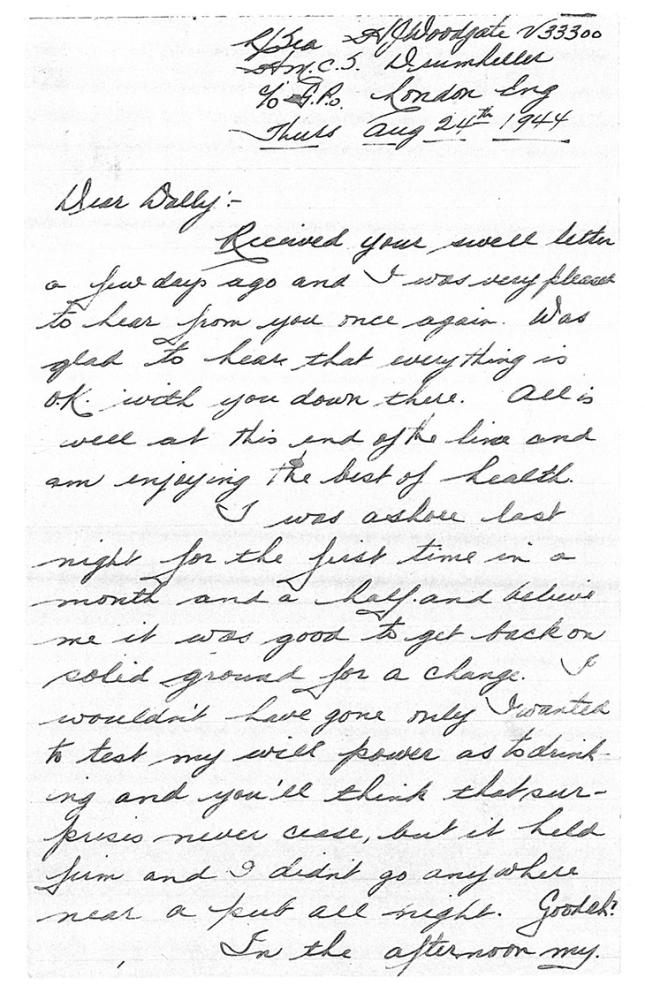 L/Sea A/J Woodgate V33300
H.M.C.S. Drumheller
c/o G.P.O. London Eng
Thurs Aug 24th 1944
Dear Wally:-
Received your swell letter
a few days ago and I was very pleased
to hear from you once again. Was
glad to hear that everything is
O.K. with you down there. All is
well at this end of the line and
am enjoying the best of health.
I was ashore last
night for the first time in a
month and a half. and believe
me it was good to get back on
solid ground for a change. I
wouldn't have gone only I wanted
to test my will power as to drink-
ing and you'll think that sur-
prises never cease, but it held
firm and I didn't go anywhere
near a pub all night. Good eh?
In the afternoon my.